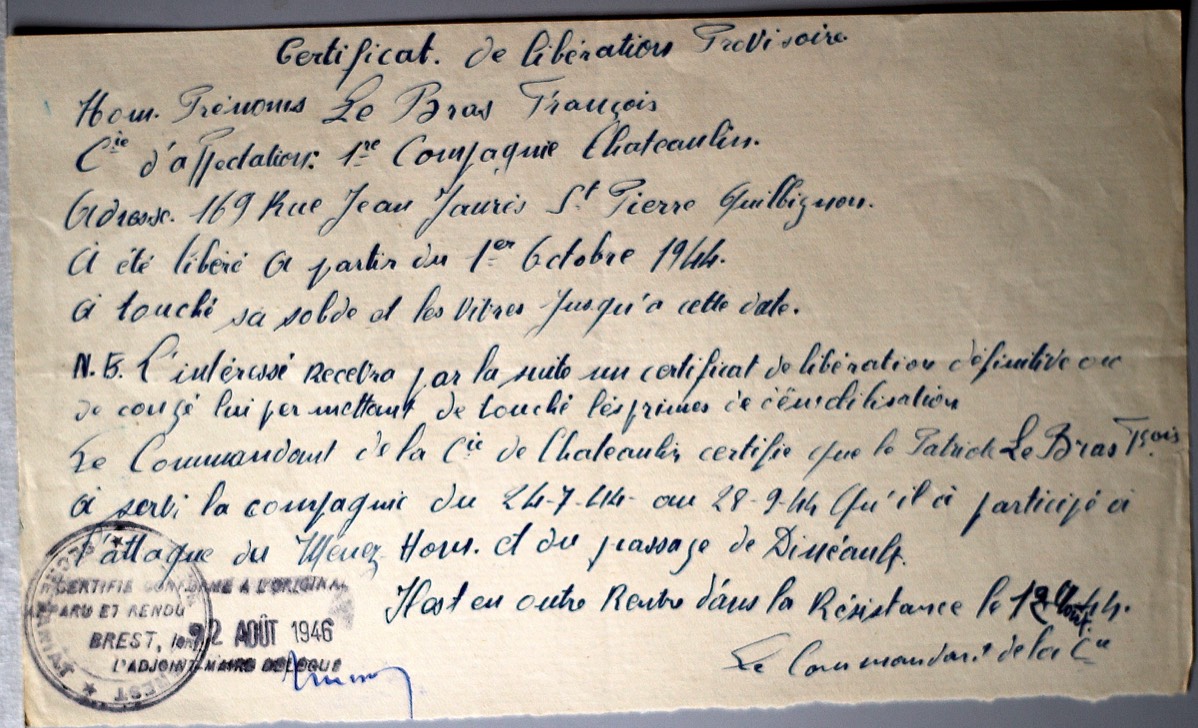 Certificat. de libération Provisoire
Nom. Prénoms Le Bras François
Cie d'affectation: 1re Compagnie Chateaulin.
Adresse. 169 Rue Jean Jaurès St Pierre Quilbignon.
A été libéré a partir du 1er Octobre 1944.
a touché sa solde et les vivres jusqu'a cette date.
N.B. L'intéressé recevra par la suite un certificat de libération définitive ou
de congé lui permettant de touché les primes de démobilisation
Le Commandant de la Cie de Chateaulin certifie que le Patriote Le Bras Fçois
à servi la compagnie du 24-7-44 au 28-9-44 qu'il à participé à
l'attaque du Menez Hom. et du passage de Dinéault.
Il est en outre Rentré dans la Résistance le 12 44.
Le Commandant de la Cie
CERTIFIE CONFORME A L'ORIGINAL
ET RENDU
BREST, le 2 AOÛT 1946
L'ADJOINT-MAIRE DELEGUE
BREST